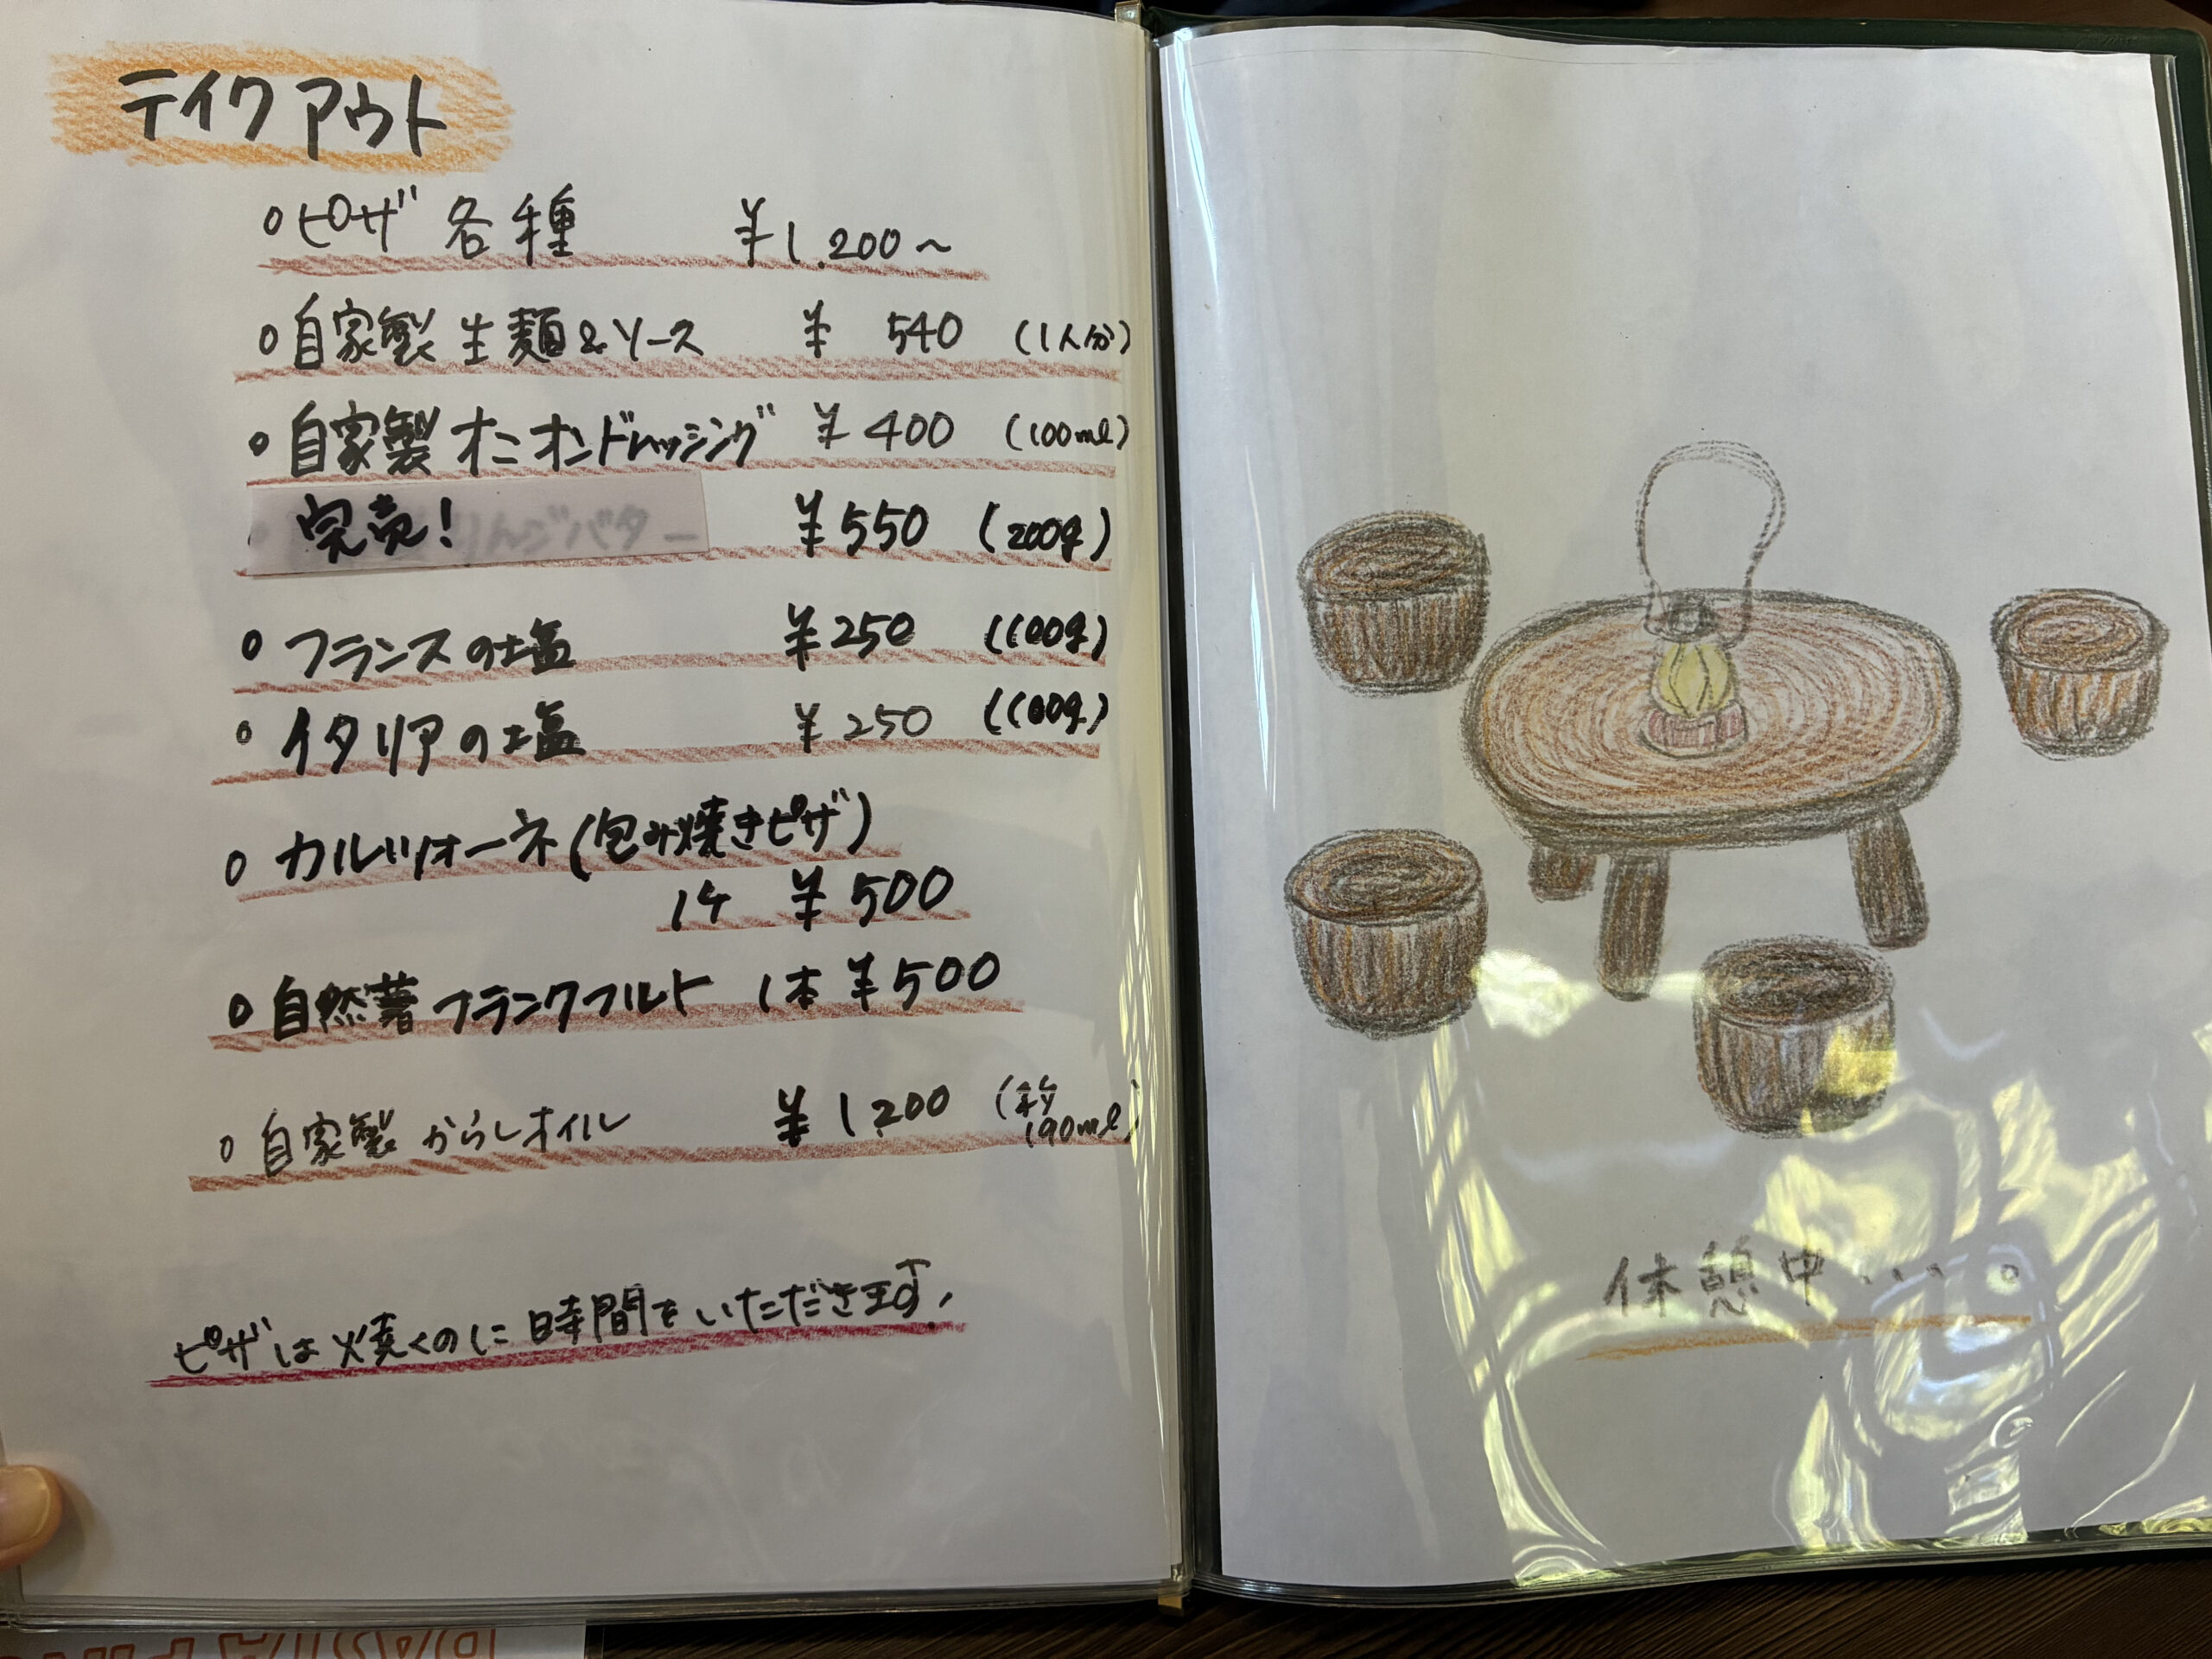 テイクアウト
○ピザ 各種 ¥1.200〜
○自家製 生麺&ソース ¥540 (1人分)
○自家製 オニオンドレッシング ¥400 (100ml)
完売! りんごバター ¥550 (200g)
○フランスの塩 ¥250 (100g)
○イタリアの塩 ¥250 (100g)
○カルツォーネ(包み焼きピザ)
1ケ ¥500
○自然薯フランクフルト 1本 ¥500
○自家製 からしオイル ¥1,200 (約
190ml)
ピザは焼くのに時間をいただきます。
休憩中...。